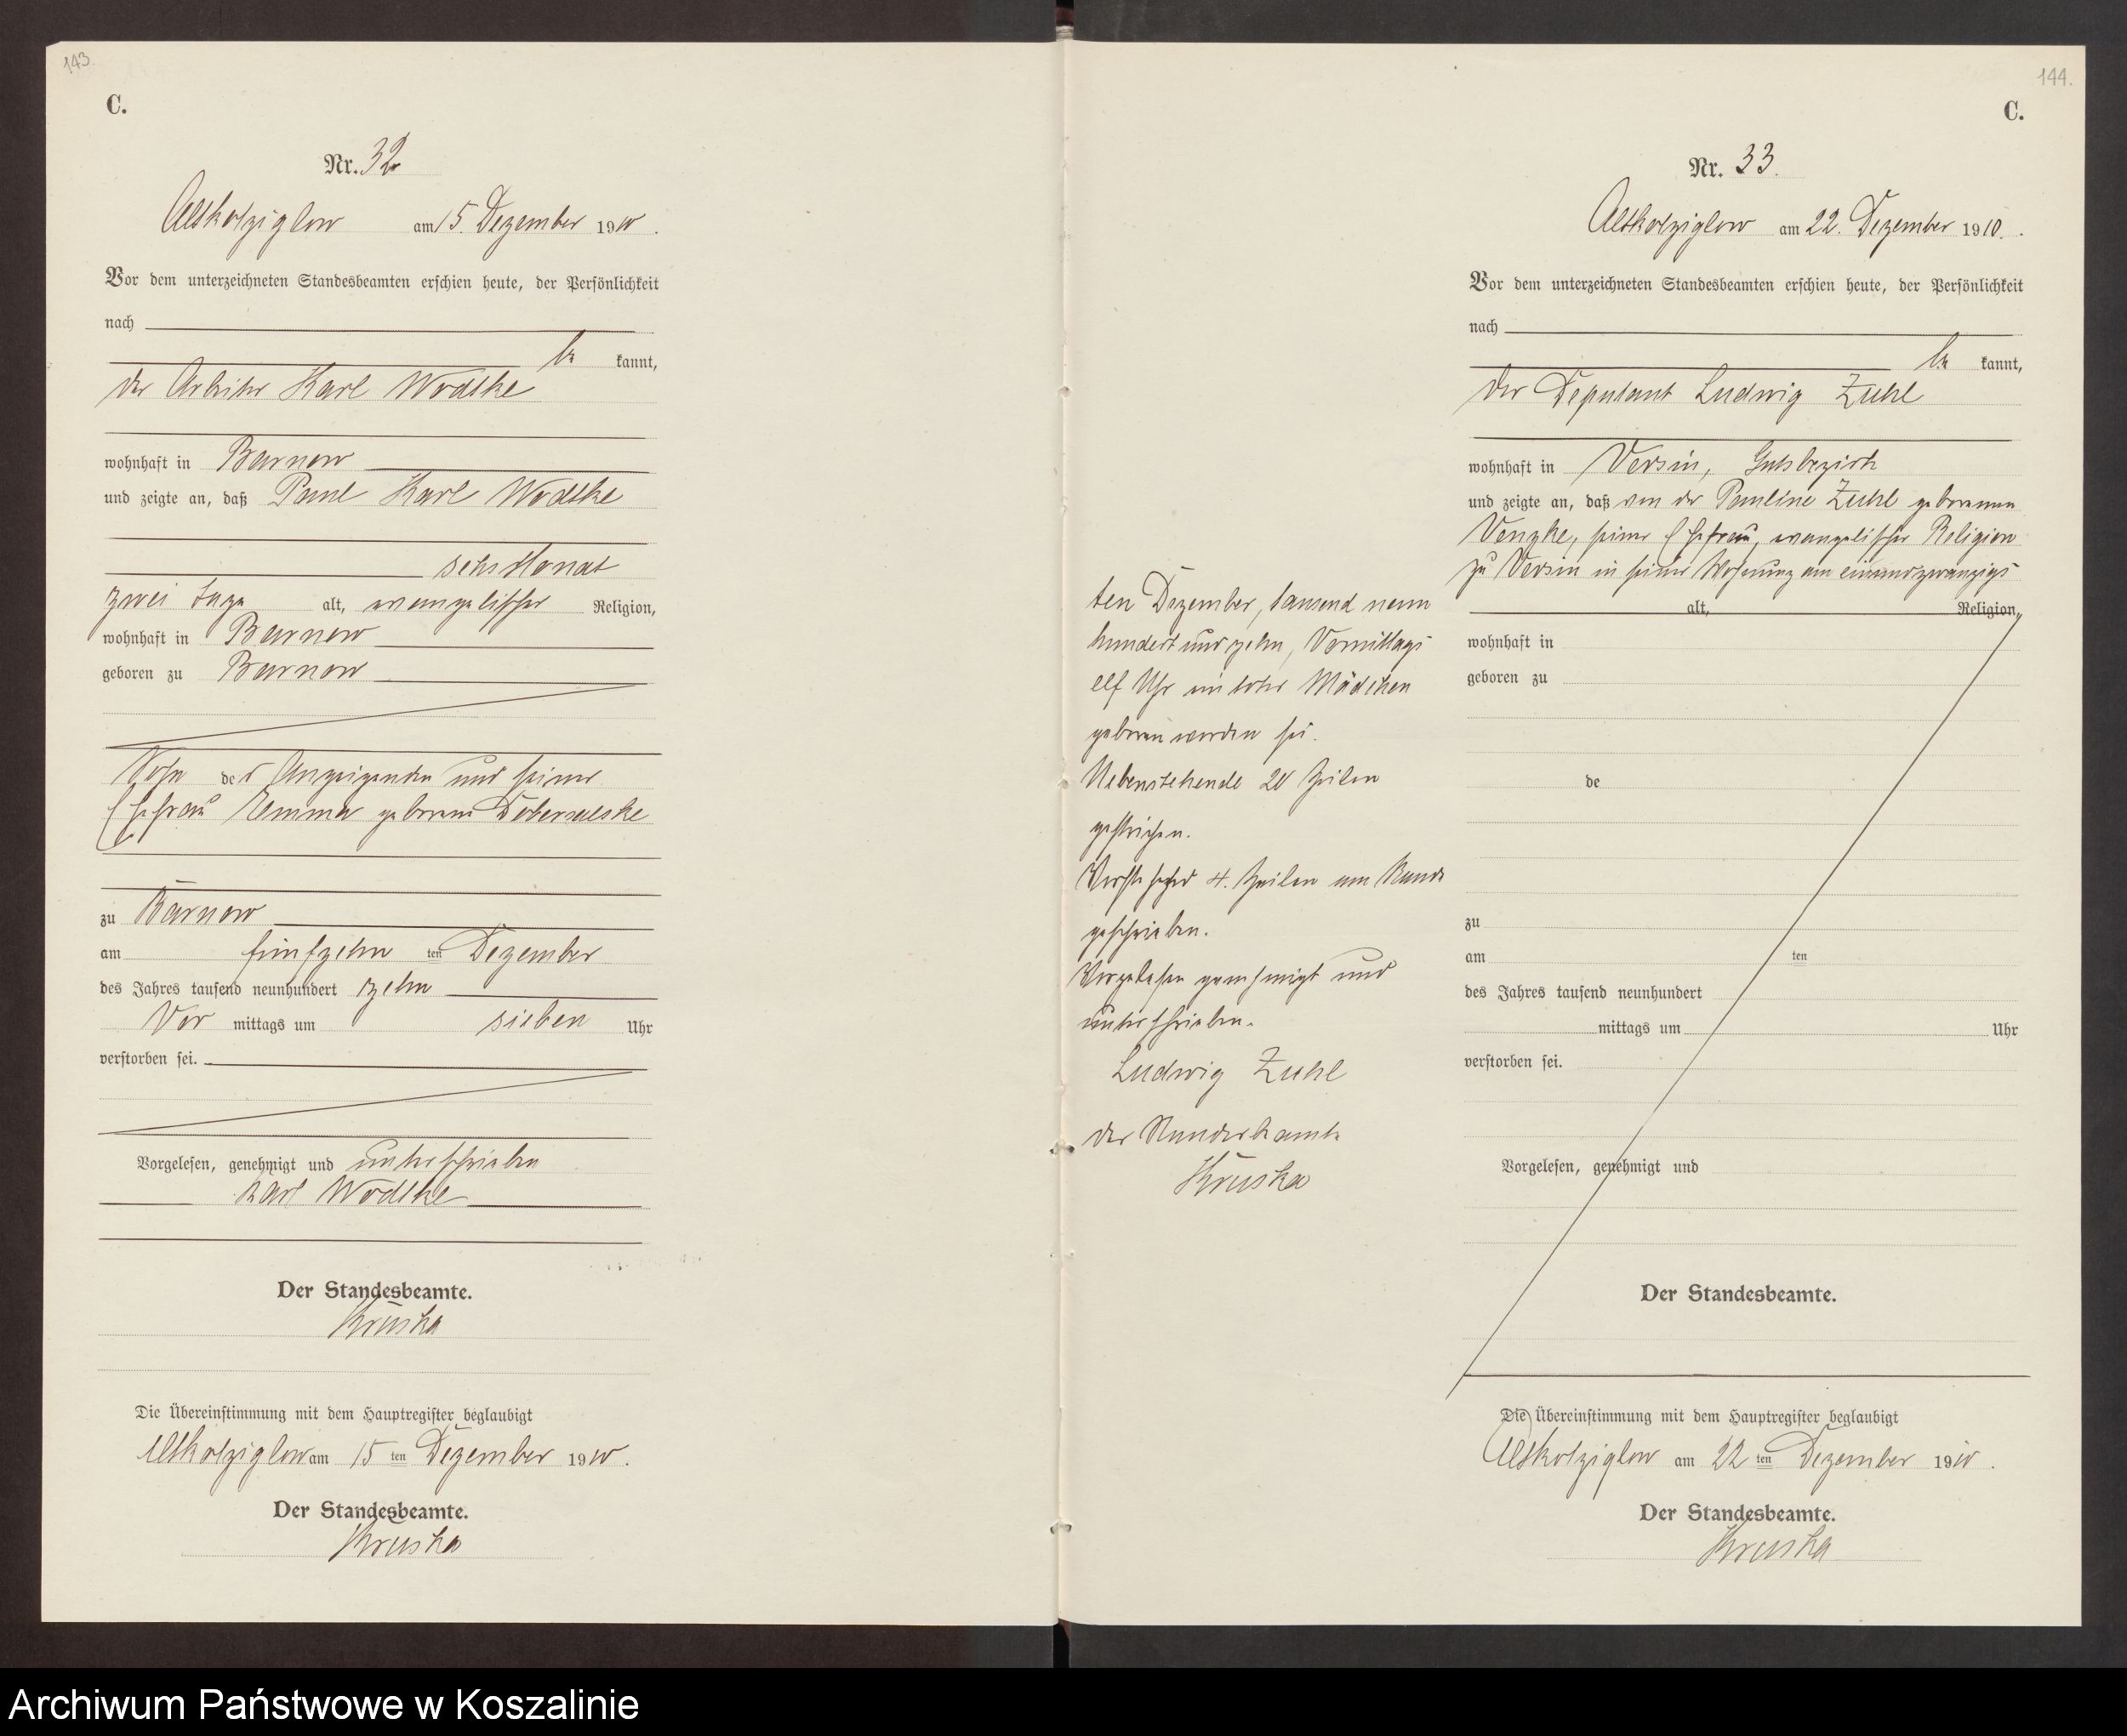 143.
C.
Nr. 32
Altkolziglow am 15. Dezember 1910.
Vor dem unterzeichneten Standesbeamten erschien heute, der Persönlichkeit
nach
be kannt,
der Arbeiter Karl Wodtke
wohnhaft in Barnow
und zeigte an, daß Paul Karl Wodtke
sechs Monat
zwei Tage alt, evangelischer Religion,
wohnhaft in Barnow
geboren zu Barnow
Sohn des Anzeigenden und seiner
Ehefrau Emma geborene
zu Barnow
am fünfzehn ten Dezember
des Jahres tausend neunhundert zehn
Vor mittags um sieben Uhr
verstorben sei.
Vorgelesen, genehmigt und unterschrieben
Karl Wodtke
Der Standesbeamte.
Kruska
Die Übereinstimmung mit dem Hauptregister beglaubigt
Altkolziglow am 15 ten Dezember 1910.
Der Standesbeamte.
Kruska
144.
C.
Nr. 33.
Altkolziglow am 22. Dezember 1910.
Vor dem unterzeichneten Standesbeamten erschien heute, der Persönlichkeit
nach
be kannt,
der Deputant Ludwig Zuhl
wohnhaft in Versin, Gutsbezirk
und zeigte an, daß von der Pauline Zuhl geborenen
Venzke, seiner Ehefrau, evangelischer Religion
zu Versin in seiner Wohnung am einundzwanzigs
alt, Religion,
wohnhaft in
geboren zu
de
zu
am ten
des Jahres tausend neunhundert
mittags um Uhr
verstorben sei.
Vorgelesen, genehmigt und
Der Standesbeamte.
ten Dezember, tausend neun
hundert und zehn, Vormittags
elf Uhr ein totes Mädchen
geboren worden sei.
Nebenstehende 20 Zeilen
gestrichen.
4. Zeilen am Rande
geschrieben.
Vorgelesen genehmigt und
unterschrieben.
Ludwig Zuhl
Der Standesbeamte
Kruska
Die Übereinstimmung mit dem Hauptregister beglaubigt
Altkolziglow am 22 ten Dezember 1910.
Der Standesbeamte.
Kruska
Archiwum Państwowe w Koszalinie